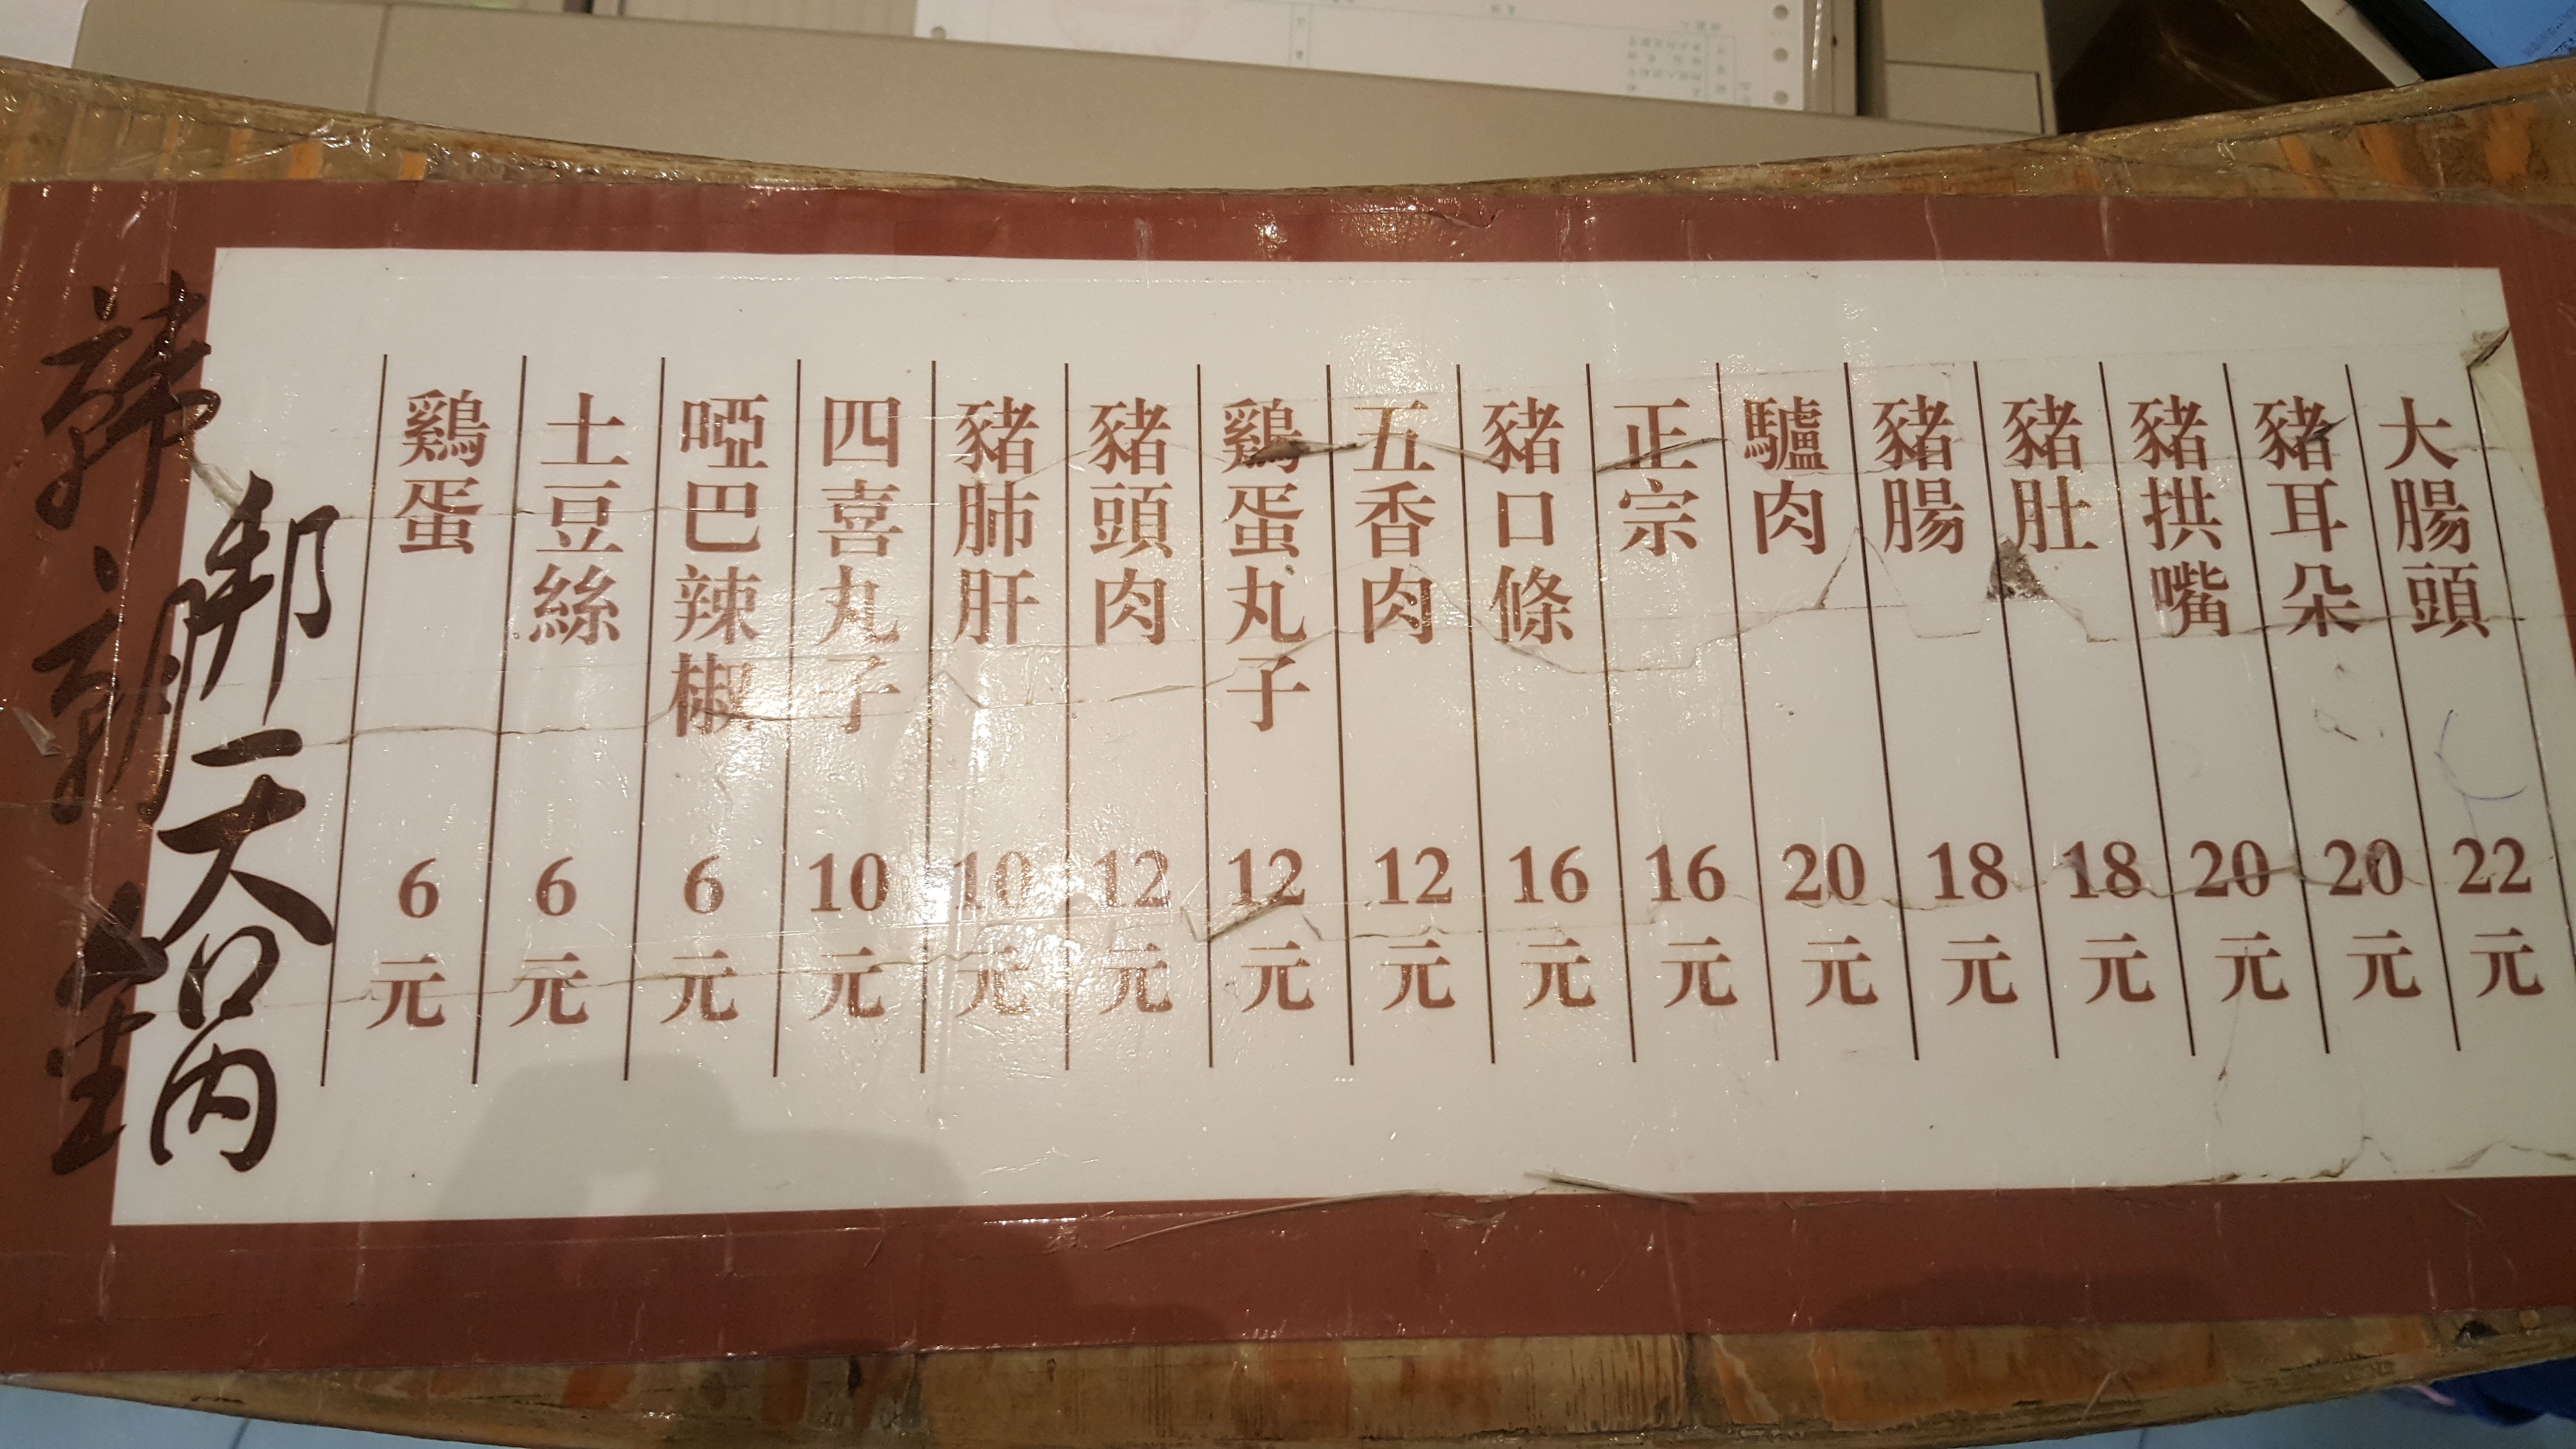 鷄蛋 6元
土豆絲 6元
啞巴辣椒 6元
四喜丸子 10元
豬肺肝 10元
豬頭肉 12元
鷄蛋丸子 12元
五香肉 12元
豬口條 16元
正宗 16元
驢肉 20元
豬腸 18元
豬肚 18元
豬拱嘴 20元
豬耳朵 20元
大腸頭 22元